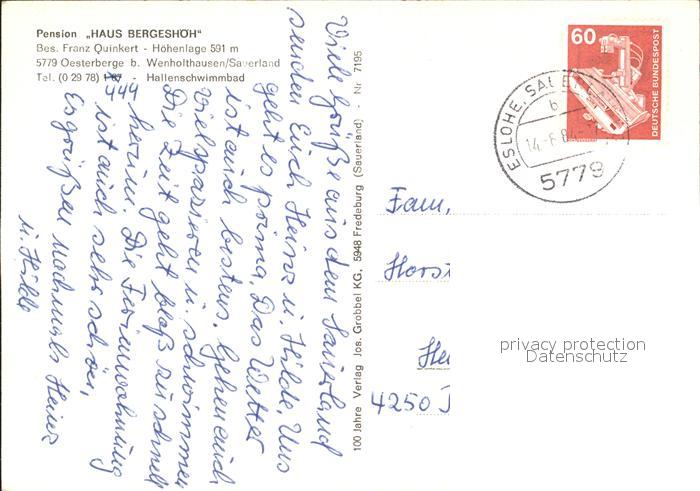 Pension „HAUS BERGESHÖH“
Bes. Franz Quinkert - Höhenlage 591 m
5779 Oesterberge b. Wenholthausen/Sauerland
Tel. (0 29 78) - Hallenschwimmbad
444
Viele Grüße aus dem Sauerland
senden Euch Heinz u. Hilde. Uns
geht es prima. Das Wetter
ist auch bestens. Gehen auch
viel spazieren u. schwimmen
Die Zeit geht bloß zu schnell
herum. Die Ferienwohnung
ist auch sehr schön.
Es grüßen nochmals Heinz
u. Hilde
100 Jahre Verlag Jos. Grobbel KG, 5948 Fredeburg (Sauerland) - Nr 7195
60
DEUTSCHE BUNDESPOST
ESLOHE, SAUE
b
14.-6.84
5779
Fam.
Horst
4250
privacy protection
Datenschutz